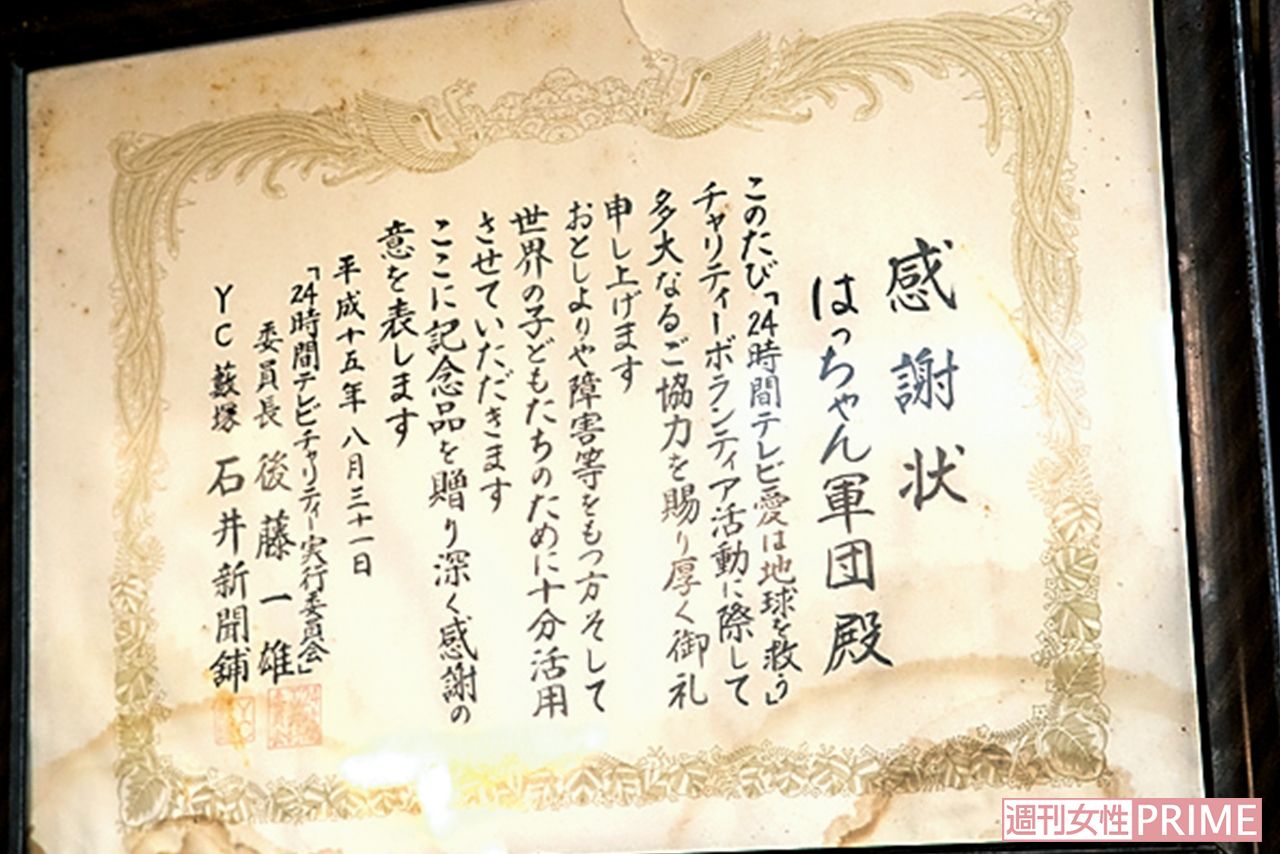 感謝状
はっちゃん軍団殿
このたび「24時間テレビ愛は地球を救う」
チャリティーボランティア活動に際して
多大なるご協力を賜り厚く御礼
申し上げます
おとしよりや障害等をもつ方そして
世界の子どもたちのために十分活用
させていただきます
ここに記念品を贈り深く感謝の
意を表します
平成十五年八月三十一日
「24時間テレビチャリティー実行委員会」
委員長 後藤一雄
YC藪塚 石井新聞舗
週刊女性PRIME